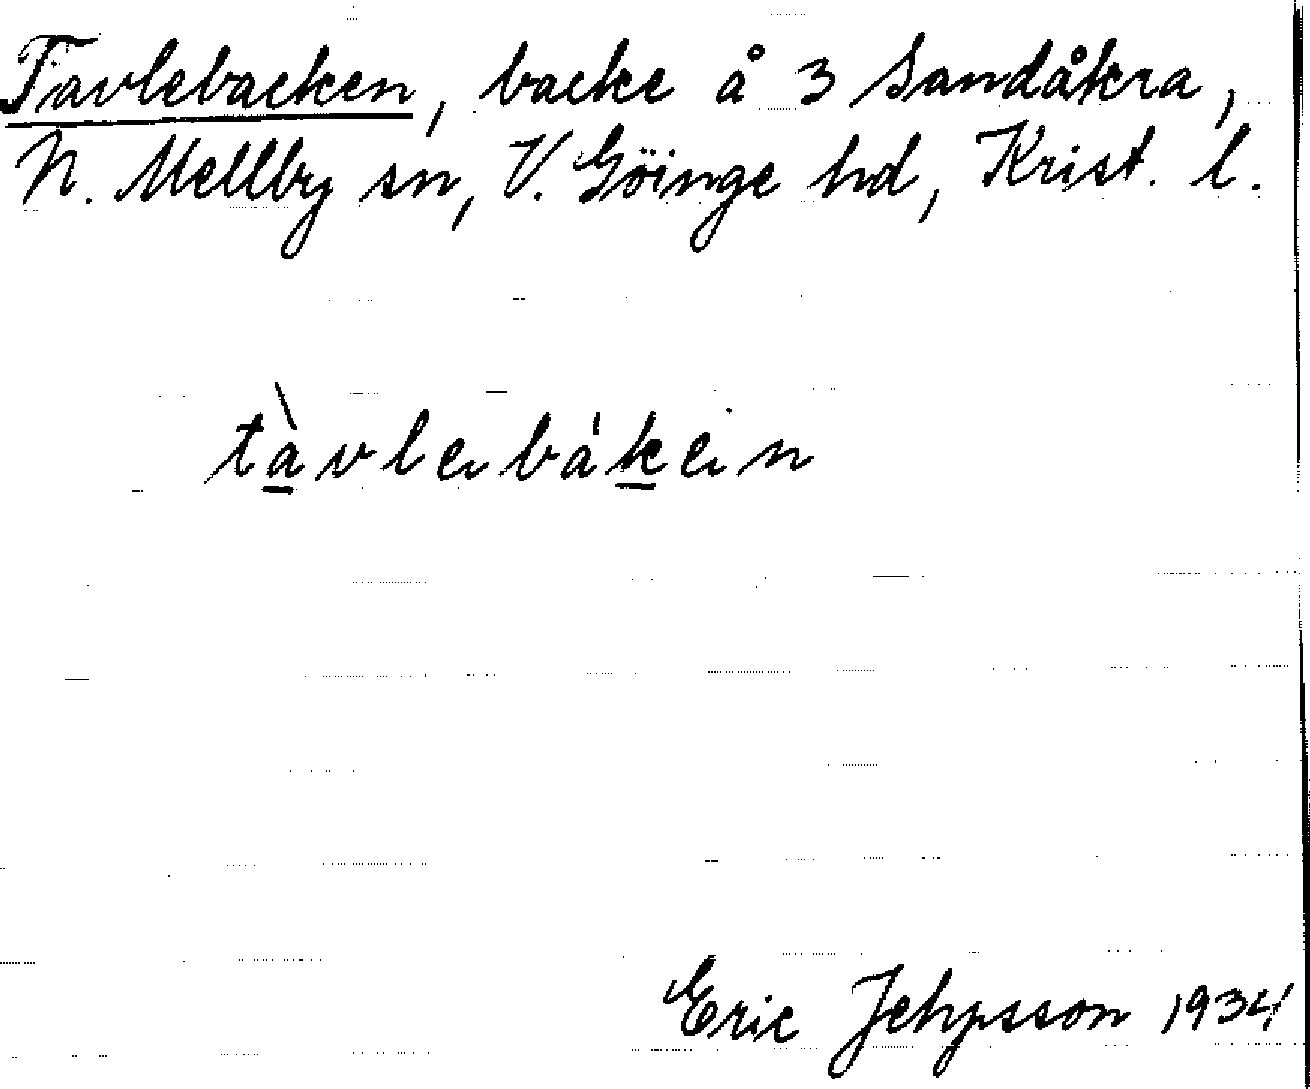 Tavlebacken, backe å 3 Sandåkra,
N. Mellby sn, V. Göinge hd, Krist. l.
tàvlebáken
Eric Jehpsson 1934